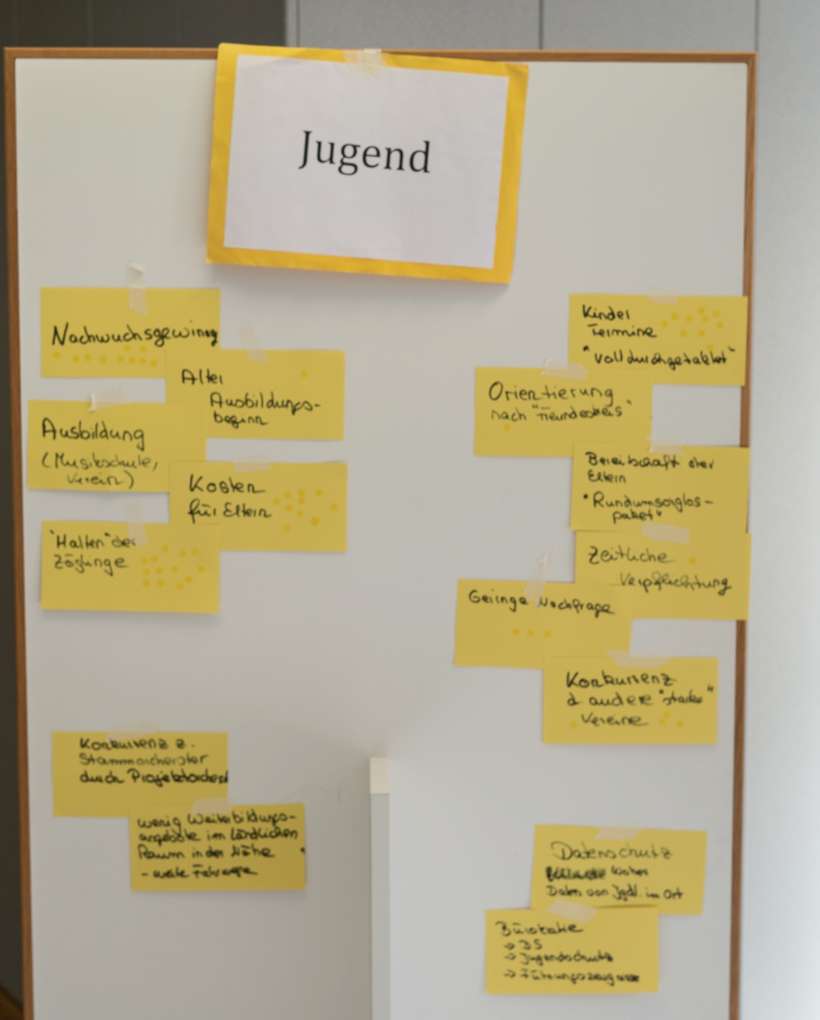 Jugend
Nachwuchsgewinng
Alter
Ausbildungs-
beginn
Ausbildung
(Musikschule,
Verein)
Kosten
für Eltern
"Halten" der
Zöglinge
Konkurrenz z.
Stammorchester
durch Projektorchest
wenig Weiterbildungs-
angebote im ländlichen
Raum in der Nähe
- weite Fahrwege
Kinder
Termine
"voll durchgetaktet"
Orientierung
nach "Freundeskreis"
Bereitschaft der
Eltern
"Rundumsorglos-
paket"
Zeitliche
Verpflichtung
Geringe Nachfrage
Konkurrenz
d andere "starke"
Vereine
Datenschutz
Woher
Daten von Jgdl. im Ort
Bürokratie
→ DS
→ Jugendschutz
→ Führungszeugnisse